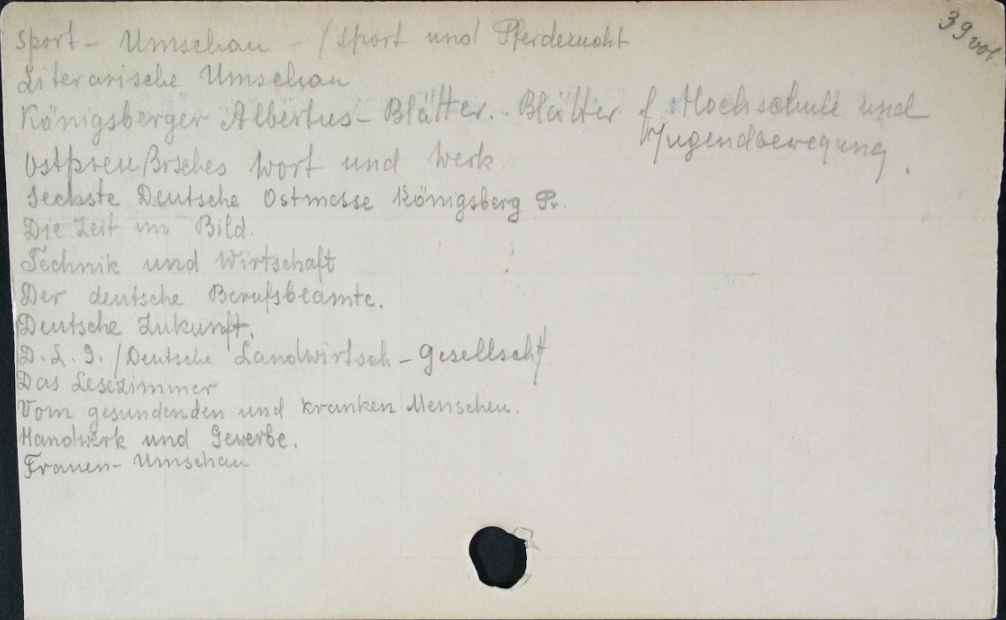 39 vol
Sport - Umschau - / Sport und Pferdezucht
Literarische Umschau
Königsberger Albertus - Blätter. - Blätter f. Hochschule und
Jugendbewegung.
Ostpreußisches Wort und Werk
Sechste Deutsche Ostmesse Königsberg Pr.
Die Zeit im Bild.
Technik und Wirtschaft
Der deutsche Berufsbeamte.
Deutsche Zukunft.
D. L. G. / Deutsche Landwirtsch - Gesellschft
Das Lesezimmer
Vom gesundenden und kranken Menschen.
Handwerk und Gewerbe.
Frauen - Umschau